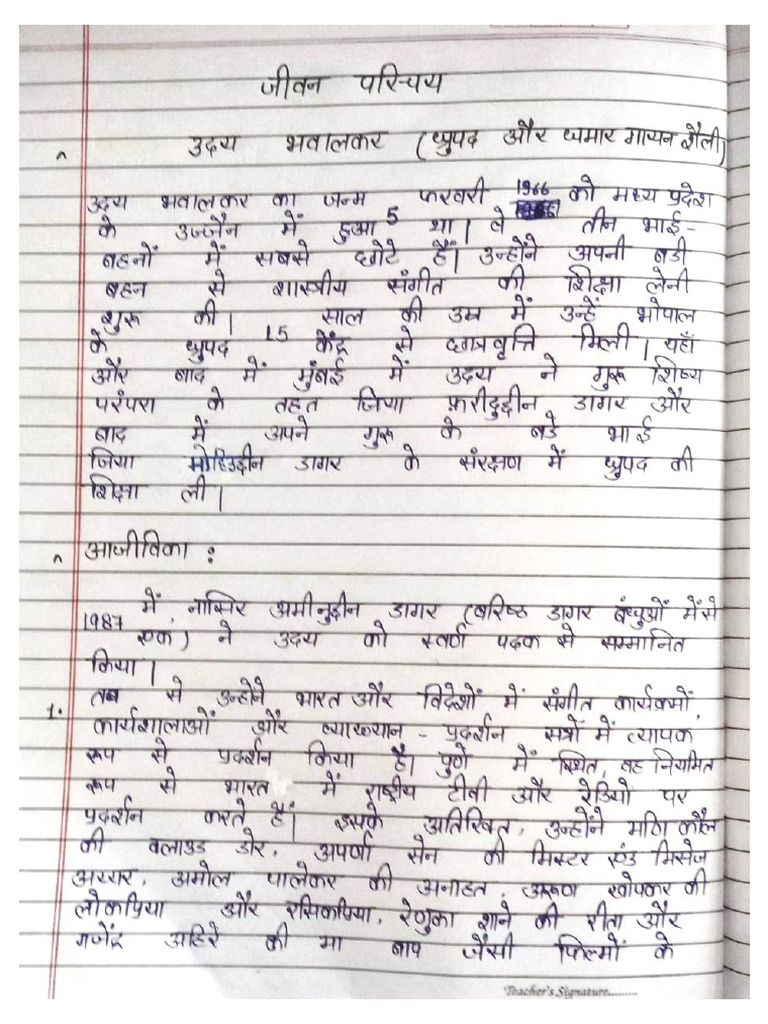 जीवन परिचय
^ उदय भवालकर (ध्रुपद और धमार गायन शैली)
उदय भवालकर का जन्म फरवरी 1966 को मध्य प्रदेश
के उज्जैन में हुआ 5 था। वे तीन भाई-
बहनों में सबसे छोटे हैं। उन्होंने अपनी बडी
बहन से शास्त्रीय संगीत की शिक्षा लेनी
शुरू की। साल की उम्र में उन्हें भोपाल
के ध्रुपद 15 केंद्र से छात्रवृत्ति मिली। यहाँ
और बाद में मुंबई में उदय ने गुरू शिष्य
परंपरा के तहत जिया फ़रीदुद्दीन डागर और
बाद में अपने गुरू के बडे भाई
जिया मोहिउद्दीन डागर के संरक्षण में ध्रुपद की
शिक्षा ली।
^ आजीविका :
में, नासिर अमीनुद्दीन डागर (वरिष्ठ डागर बंधुओं में से
1987 एक) ने उदय को स्वर्ण पदक से सम्मानित
किया।
तब से उन्होंने भारत और विदेशों में संगीत कार्यक्रमों,
1. कार्यशालाओं और व्याख्यान - प्रदर्शन सत्रों में व्यापक
रूप से प्रदर्शन किया है। पुणे में स्थित, वह नियमित
रूप से भारत में राष्ट्रीय टीवी और रेडियो पर
प्रदर्शन करते हैं। इसके अतिरिक्त, उन्होंने मणि कौल
की क्लाउड डोर, अपर्णा सेन की मिस्टर एंड मिसेज
अय्यर, अमोल पालेकर की अनाहत, अरूण खोपकर की
लोकप्रिया और रसिकप्रिया, रेणुका शाने की रीता और
गजेंद्र अहिरे की मा बाप जैसी फिल्मों के
Teacher's Signature..........